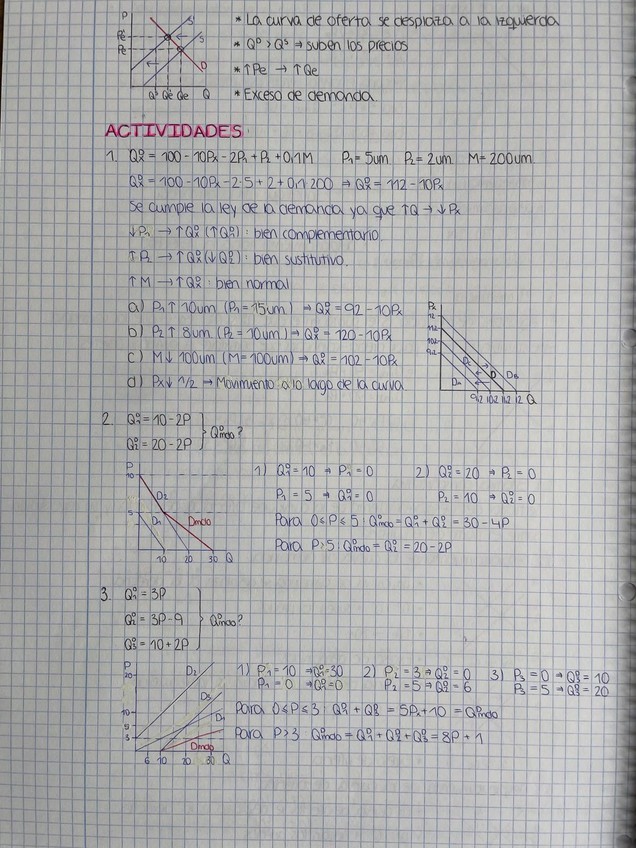 P S' S
Pe'
Pe
D
Qˢ Qe' Qe Q
* La curva de oferta se desplaza a la izquierda
* Qᴰ > Qˢ ⇒ suben los precios
* ↑Pe → ↑Qe
* Exceso de demanda.
ACTIVIDADES
1. Qxᴰ = 100 - 10Px - 2P₁ + P₂ + 0,1M P₁ = 5um P₂ = 2um M = 200um
Qxᴰ = 100 - 10Px - 2·5 + 2 + 0,1·200 ⇒ Qxᴰ = 112 - 10Px
Se cumple la ley de la demanda ya que ↑Q → ↓Px
↓P₁ → ↑Qxᴰ (↑Q₁ᴰ): bien complementario.
↑P₂ → ↑Qxᴰ (↓Q₂ᴰ): bien sustitutivo.
↑M → ↑Qxᴰ: bien normal
a) P₁ ↑ 10um (P₁ = 15um) ⇒ Qxᴰ = 92 - 10Px
b) P₂ ↑ 8um (P₂ = 10um) ⇒ Qxᴰ = 120 - 10Px
c) M↓ 100um (M = 100um) ⇒ Qxᴰ = 102 - 10Px
d) Px↓ 1/2 → Movimiento a lo largo de la curva
Px
12
11,2
10,2
9,2
Da Dc D Db
9,2 10,2 11,2 12 Q
2. Q₁ᴰ = 10 - 2P
Q₂ᴰ = 20 - 2P
Qᴰmdo?
P
10
5
D₂
D₁
Dmdo
10 20 30 Q
1) Q₁ᴰ = 10 ⇒ P₁ = 0
P₁ = 5 ⇒ Q₁ᴰ = 0
2) Q₂ᴰ = 20 ⇒ P₂ = 0
P₂ = 10 ⇒ Q₂ᴰ = 0
Para 0 ≤ P ≤ 5 Qᴰmdo = Q₁ᴰ + Q₂ᴰ = 30 - 4P
Para P > 5 Qᴰmdo = Q₂ᴰ = 20 - 2P
3. Q₁ᴰ = 3P
Q₂ᴰ = 3P - 9
Q₃ᴰ = 10 + 2P
Qᴰmdo?
P
20
10
5
3
D₂
D₃
D₁
Dmdo
6 10 20 30 Q
1) P₁ = 10 ⇒ Q₁ᴰ = 30
P₁ = 0 ⇒ Q₁ᴰ = 0
2) P₂ = 3 ⇒ Q₂ᴰ = 0
P₂ = 5 ⇒ Q₂ᴰ = 6
3) P₃ = 0 ⇒ Q₃ᴰ = 10
P₃ = 5 ⇒ Q₃ᴰ = 20
Para 0 ≤ P ≤ 3 Q₁ᴰ + Q₃ᴰ = 5Px + 10 = Qᴰmdo
Para P > 3 Qᴰmdo = Q₁ᴰ + Q₂ᴰ + Q₃ᴰ = 8P + 1